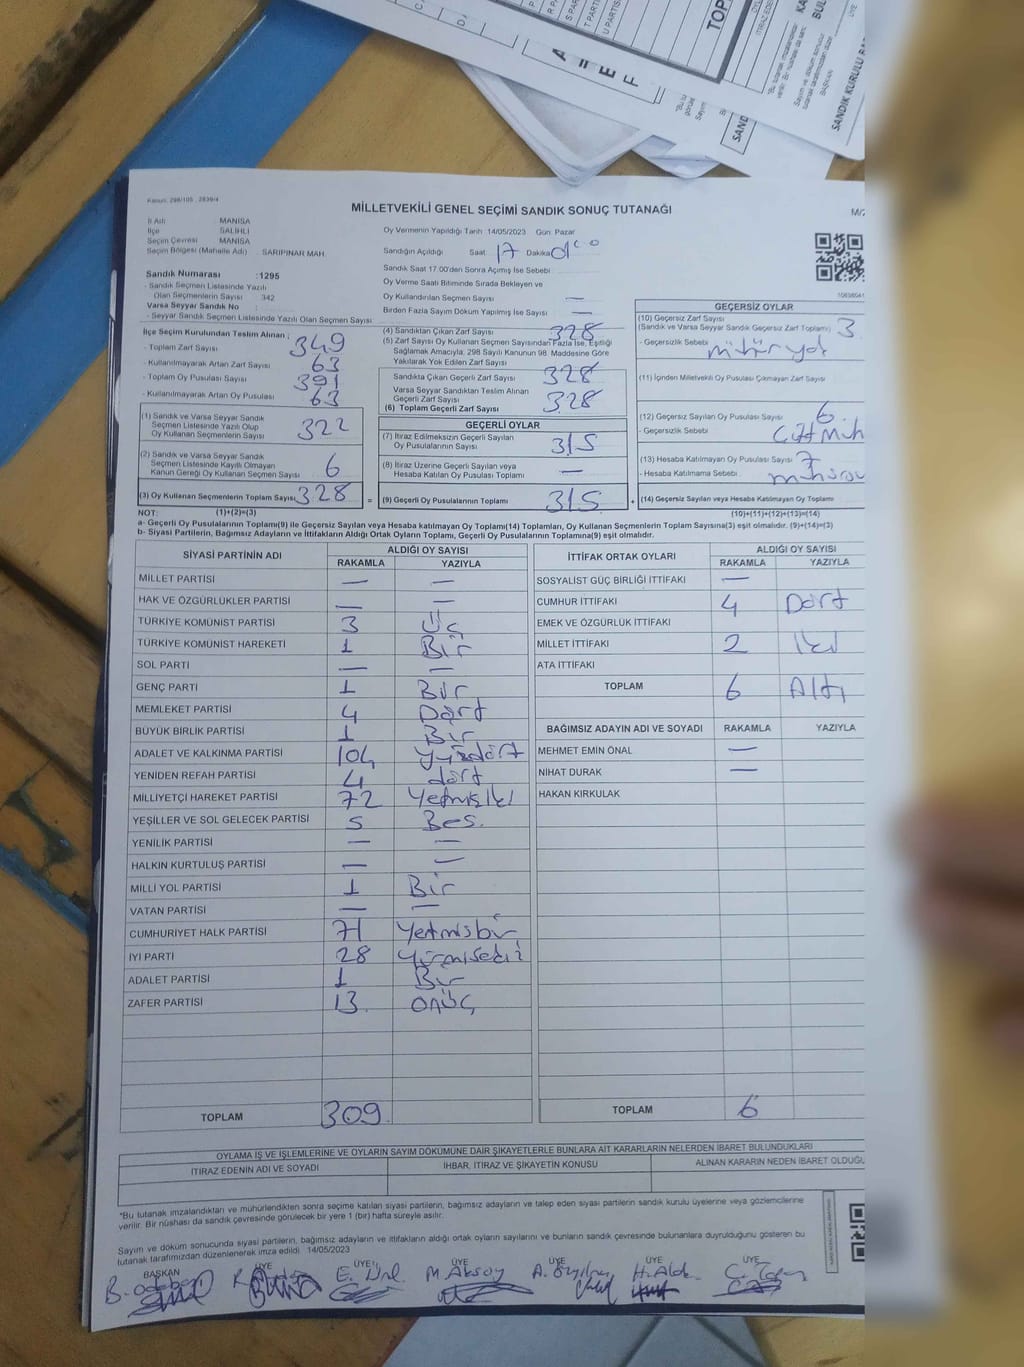 Kanun: 298/105 , 2839/4
MİLLETVEKİLİ GENEL SEÇİMİ SANDIK SONUÇ TUTANAĞI
İl Adı : MANİSA
İlçe : SALİHLİ
Seçim Çevresi : MANİSA
Seçim Bölgesi (Mahalle Adı) : SARIPINAR MAH.
Sandık Numarası :1295
- Sandık Seçmen Listesinde Yazılı
Olan Seçmenlerin Sayısı : 342
Varsa Seyyar Sandık No :
- Seyyar Sandık Seçmen Listesinde Yazılı Olan Seçmen Sayısı:
Oy Vermenin Yapıldığı Tarih :14/05/2023 Gün: Pazar
Sandığın Açıldığı Saat 17 Dakika 00
Sandık Saat 17.00'den Sonra Açılmış İse Sebebi
Oy Verme Saati Bitiminde Sırada Bekleyen ve
Oy Kullandırılan Seçmen Sayısı —
Birden Fazla Sayım Döküm Yapılmış İse Sayısı —
İlçe Seçim Kurulundan Teslim Alınan ;
- Toplam Zarf Sayısı 349
- Kullanılmayarak Artan Zarf Sayısı 63
- Toplam Oy Pusulası Sayısı 391
- Kullanılmayarak Artan Oy Pusulası 63
(1) Sandık ve Varsa Seyyar Sandık
Seçmen Listesinde Yazılı Olup
Oy Kullanan Seçmenlerin Sayısı 322
(2) Sandık ve Varsa Seyyar Sandık
Seçmen Listesinde Kayıtlı Olmayan
Kanun Gereği Oy Kullanan Seçmen Sayısı 6
(3) Oy Kullanan Seçmenlerin Toplam Sayısı 328
(4) Sandıktan Çıkan Zarf Sayısı 328
(5) Zarf Sayısı Oy Kullanan Seçmen Sayısından Fazla İse, Eşitliği
Sağlamak Amacıyla, 298 Sayılı Kanunun 98. Maddesine Göre
Yakılarak Yok Edilen Zarf Sayısı
Sandıkta Çıkan Geçerli Zarf Sayısı 328
Varsa Seyyar Sandıktan Teslim Alınan
Geçerli Zarf Sayısı
(6) Toplam Geçerli Zarf Sayısı 328
GEÇERLİ OYLAR
(7) İtiraz Edilmeksizin Geçerli Sayılan
Oy Pusulalarının Sayısı 315
(8) İtiraz Üzerine Geçerli Sayılan veya
Hesaba Katılan Oy Pusulası Toplamı —
= (9) Geçerli Oy Pusulalarının Toplamı 315 +
GEÇERSİZ OYLAR
(10) Geçersiz Zarf Sayısı
(Sandık ve Varsa Seyyar Sandık Geçersiz Zarf Toplamı) 3
- Geçersizlik Sebebi mühür yok
(11) İçinden Milletvekili Oy Pusulası Çıkmayan Zarf Sayısı
(12) Geçersiz Sayılan Oy Pusulası Sayısı 6
- Geçersizlik Sebebi Çift Müh
(13) Hesaba Katılmayan Oy Pusulası Sayısı 7
- Hesaba Katılmama Sebebi
(14) Geçersiz Sayılan veya Hesaba Katılmayan Oy Toplamı
NOT: (1)+(2)=(3) (10)+(11)+(12)+(13)=(14)
a- Geçerli Oy Pusulaları Toplamı(9) ile Geçersiz Sayılan veya Hesaba katılmayan Oy Toplamı(14) Toplamları, Oy Kullanan Seçmenlerin Toplam Sayısına(3) eşit olmalıdır. (9)+(14)=(3)
b- Siyasi Partilerin, Bağımsız Adayların ve İttifakların Aldığı Ortak Oyların Toplamı, Geçerli Oy Pusulalarının Toplamına(9) eşit olmalıdır.
SİYASİ PARTİNİN ADI ALDIĞI OY SAYISI
RAKAMLA YAZIYLA
MİLLET PARTİSİ — —
HAK VE ÖZGÜRLÜKLER PARTİSİ — —
TÜRKİYE KOMÜNİST PARTİSİ 3 Üç
TÜRKİYE KOMÜNİST HAREKETİ 1 Bir
SOL PARTİ — —
GENÇ PARTİ 1 Bir
MEMLEKET PARTİSİ 4 Dört
BÜYÜK BİRLİK PARTİSİ 1 Bir
ADALET VE KALKINMA PARTİSİ 104 Yüzdört
YENİDEN REFAH PARTİSİ 4 dört
MİLLİYETÇİ HAREKET PARTİSİ 72 Yetmişiki
YEŞİLLER VE SOL GELECEK PARTİSİ 5 Beş.
YENİLİK PARTİSİ — —
HALKIN KURTULUŞ PARTİSİ — —
MİLLİ YOL PARTİSİ 1 Bir
VATAN PARTİSİ — —
CUMHURİYET HALK PARTİSİ 71 Yetmişbir
İYİ PARTİ 28 Yirmisekiz
ADALET PARTİSİ 1 Bir
ZAFER PARTİSİ 13 onüç
TOPLAM 309
İTTİFAK ORTAK OYLARI ALDIĞI OY SAYISI
RAKAMLA YAZIYLA
SOSYALİST GÜÇ BİRLİĞİ İTTİFAKI —
CUMHUR İTTİFAKI 4 Dört
EMEK VE ÖZGÜRLÜK İTTİFAKI
MİLLET İTTİFAKI 2 İki
ATA İTTİFAKI
TOPLAM 6 Altı
BAĞIMSIZ ADAYIN ADI VE SOYADI RAKAMLA YAZIYLA
MEHMET EMİN ÖNAL —
NİHAT DURAK —
HAKAN KIRKULAK
TOPLAM 6
OYLAMA İŞ VE İŞLEMLERİNE VE OYLARIN SAYIM DÖKÜMÜNE DAİR ŞİKAYETLERLE BUNLARA AİT KARARLARIN NELERDEN İBARET BULUNDUKLARI
İTİRAZ EDENİN ADI VE SOYADI İHBAR, İTİRAZ VE ŞİKAYETİN KONUSU ALINAN KARARIN NEDEN İBARET OLDUĞU
*Bu tutanak imzalandıktan ve mühürlendikten sonra seçime katılan siyasi partilerin, bağımsız adayların ve talep eden siyasi partilerin sandık kurulu üyelerine veya gözlemcilerine
verilir. Bir nüshası da sandık çevresinde görülecek bir yere 1 (bir) hafta süreyle asılır.
Sayım ve döküm sonucunda siyasi partilerin, bağımsız adayların ve ittifakların aldığı ortak oyların sayılarını ve bunların sandık çevresinde bulunanlara duyrulduğunu gösteren bu
tutanak tarafımızdan düzenlenerek imza edildi. 14/05/2023
BAŞKAN ÜYE ÜYE ÜYE ÜYE ÜYE ÜYE
E. Ünl M. Aksoy